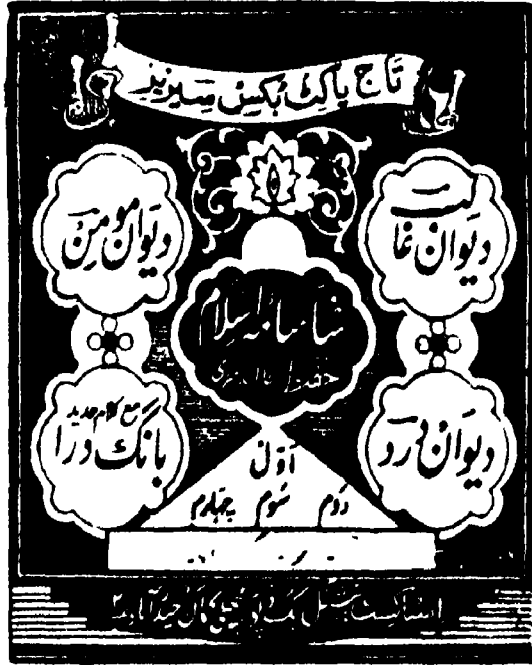 تاج پاکٹ بکس سیریز
دیوان غالب
دیوان مومن
شاہنامہ اسلام
حفیظ جالندھری
دیوان درد
بانگ درا
مع کلام جدید
اوّل
دوم سوم چہارم